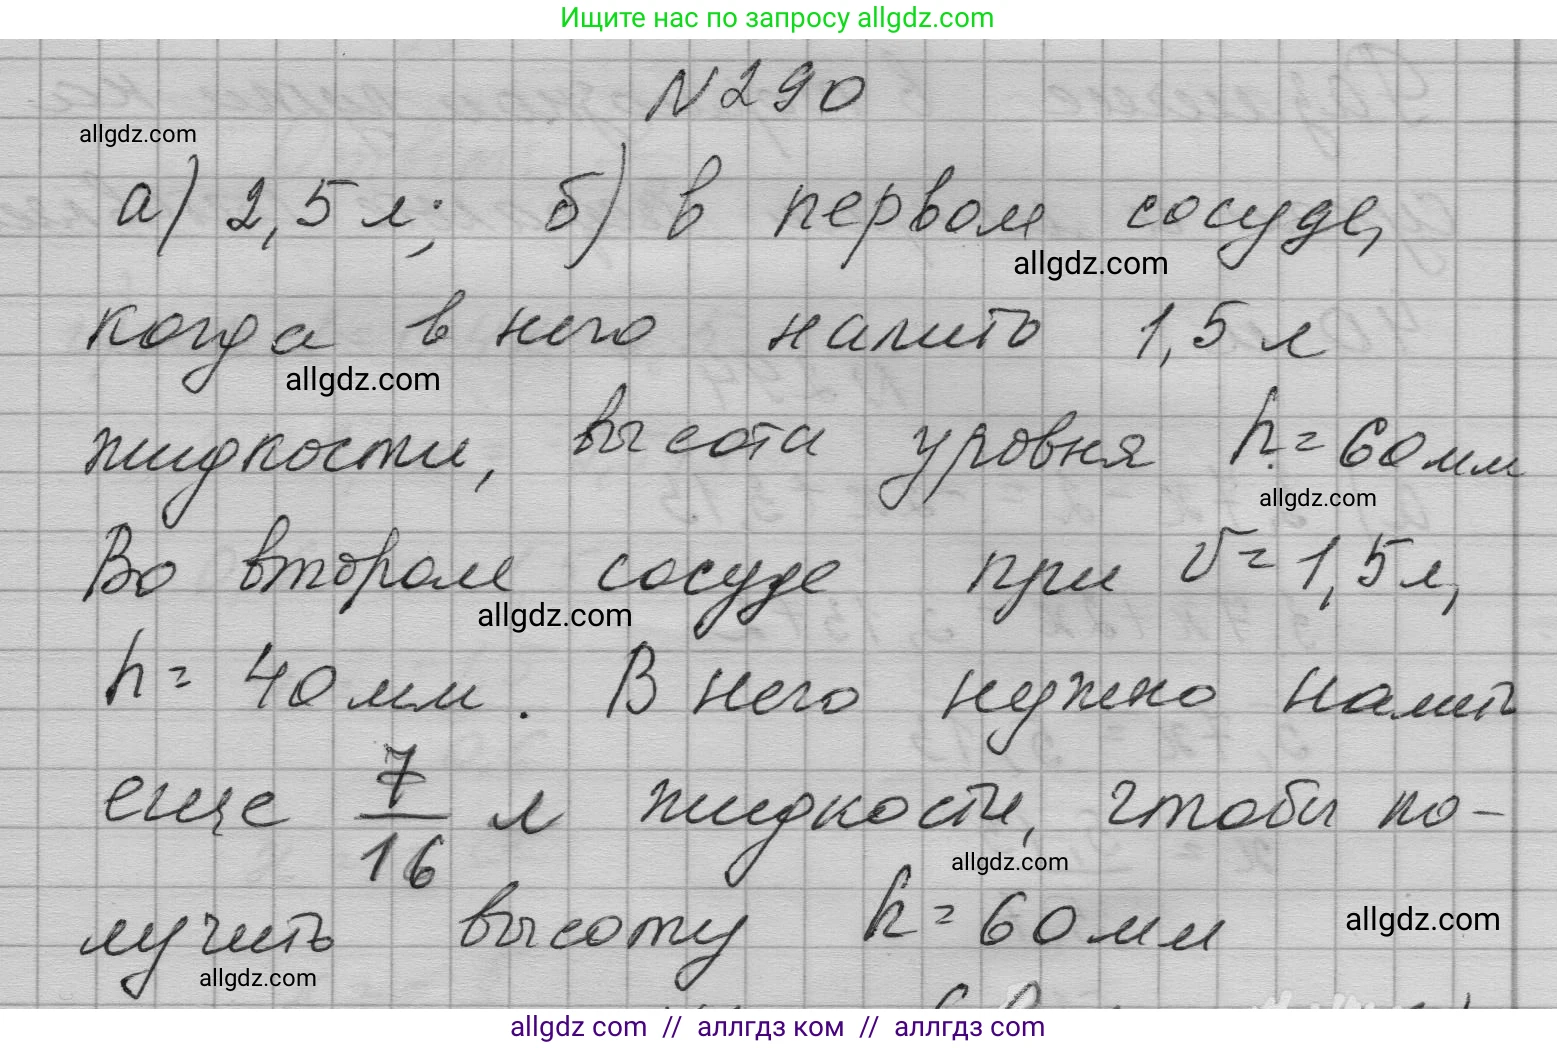 Ищите нас по запросу allgdz.com
N290
allgdz.com
а) 2,5 л; б) в первом сосуде,
allgdz.com
когда в него налить 1,5 л
allgdz.com
жидкости, высота уровня h = 60 мм
allgdz.com
Во втором сосуде при V = 1,5 л,
allgdz.com
h = 40 мм. В него нужно налить
еще 7/16 л жидкости, чтобы по-
allgdz.com
лучить высоту h = 60 мм
allgdz.com
allgdz.com
allgdz com // аллгдз ком // аллгдз com